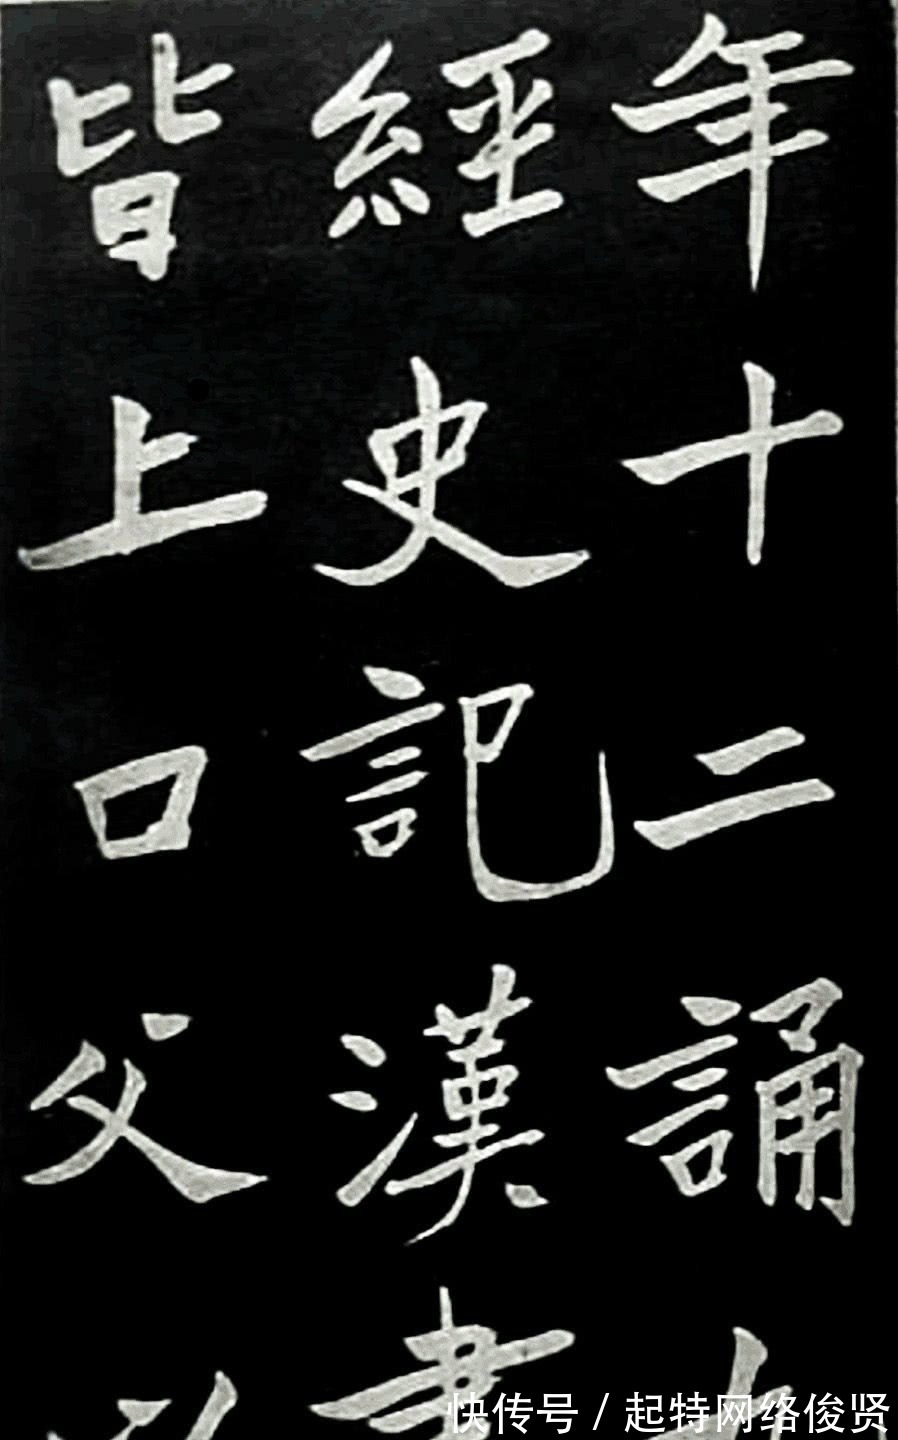 年十二誦九
經史記漢書
皆上口父以
快传号/起特网络俊贤